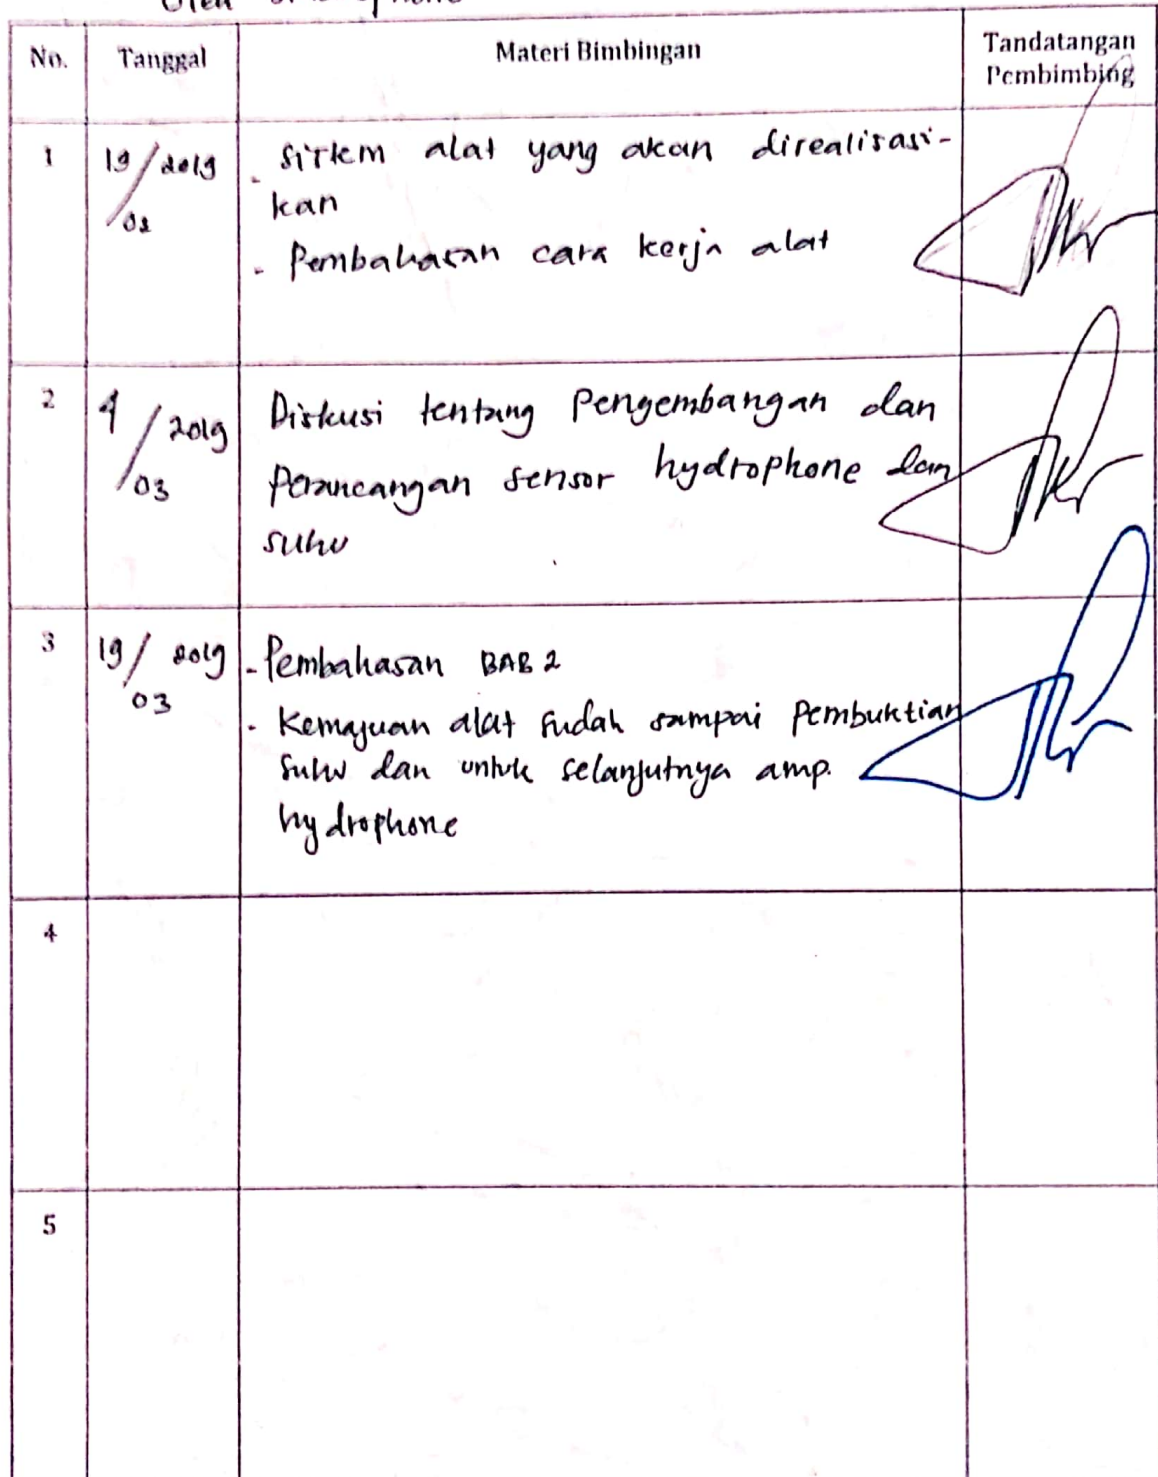 Oleh
No. Tanggal Materi Bimbingan Tandatangan
Pembimbing
1 19/2019 - Sistem alat yang akan direalisasi-
/02 kan
- Pembahasan cara kerja alat
2 4/2019 Diskusi tentang Pengembangan dan
/03 Perancangan sensor hydrophone dan
suhu
3 19/2019 - Pembahasan BAB 2
03 - Kemajuan alat sudah sampai Pembuktian
suhu dan untuk selanjutnya amp.
hydrophone
4
5